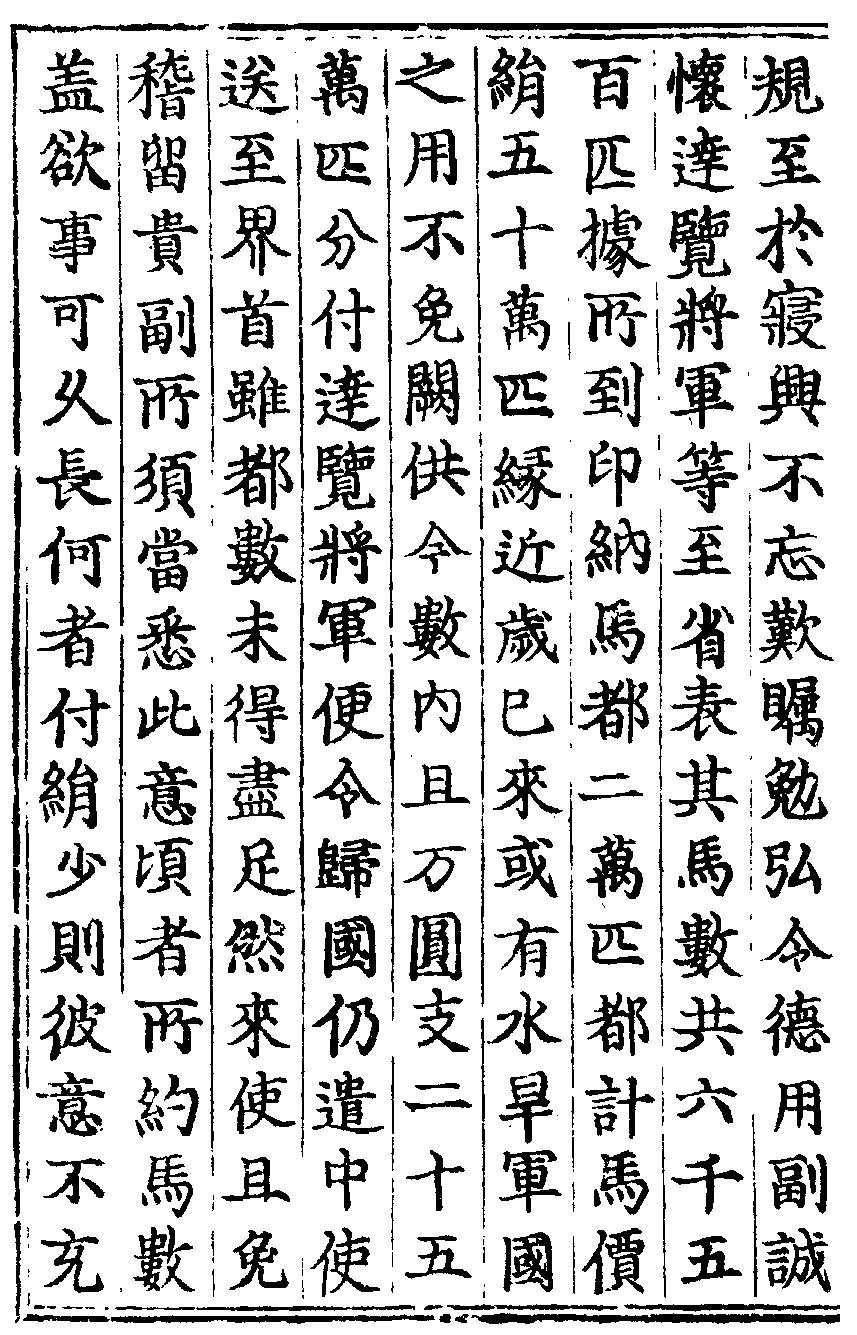 規至於寢興不忘歎矚勉弘令德用副誠
懷達覽將軍等至省表其馬數共六千五
百匹據所到印納馬都二萬匹都計馬價
絹五十萬匹縁近歲已來或有水旱軍國
之用不免闕供今數內且万圓支二十五
萬匹分付達覽將軍便令歸國仍遣中使
送至界首雖都數未得盡足然來使且免
稽留貴副所須當悉此意頃者所約馬數
盖欲事可久長何者付絹少則彼意不充